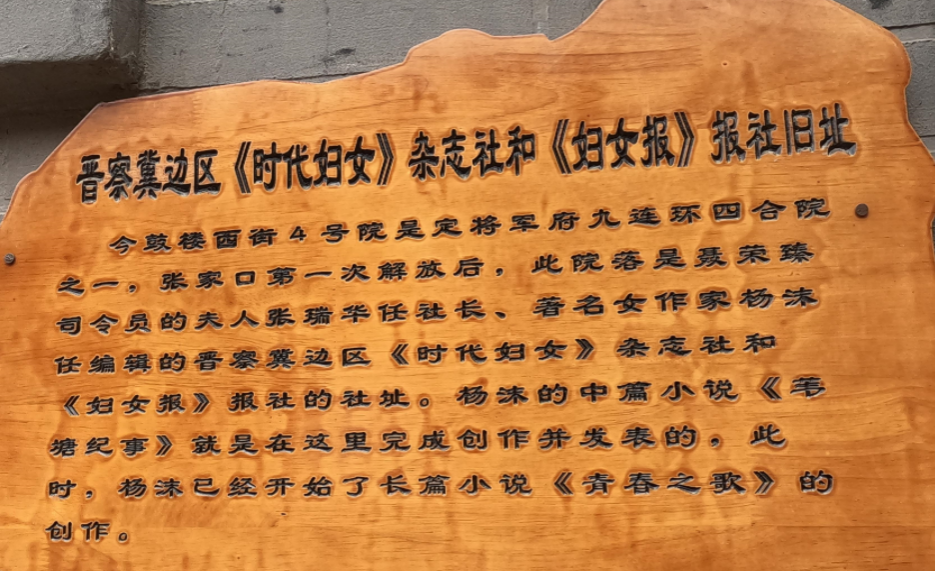 晋察冀边区《时代妇女》杂志社和《妇女报》报社旧址
今鼓楼西街4号院是定将军府九连环四合院
之一，张家口第一次解放后，此院落是聂荣臻
司令员的夫人张瑞华任社长、著名女作家杨沫
任编辑的晋察冀边区《时代妇女》杂志社和
《妇女报》报社的社址。杨沫的中篇小说《苇
塘纪事》就是在这里完成创作并发表的。此
时，杨沫已经开始了长篇小说《青春之歌》的
创作。